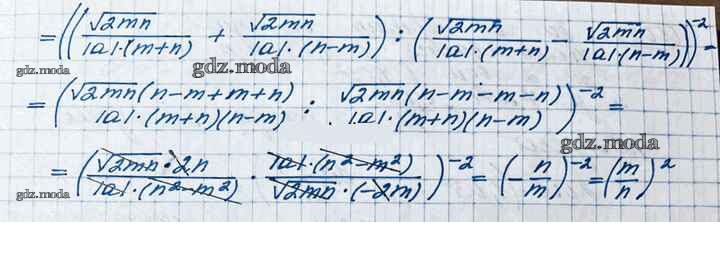 = ((√2mn / |a|·(m+n) + √2mn / |a|·(n-m)) : (√2mn / |a|·(m+n) - √2mn / |a|·(n-m)))^-2 =
gdz.moda
gdz.moda
gdz.moda
= (√2mn(n-m+m+n) / |a|·(m+n)(n-m) : √2mn(n-m-m-n) / |a|·(m+n)(n-m))^-2 =
gdz.moda
= (√2mn·2n / |a|·(n²-m²) · |a|·(n²-m²) / √2mn·(-2m))^-2 = (-n/m)^-2 = (m/n)²
gdz.moda
gdz.moda
gdz.moda